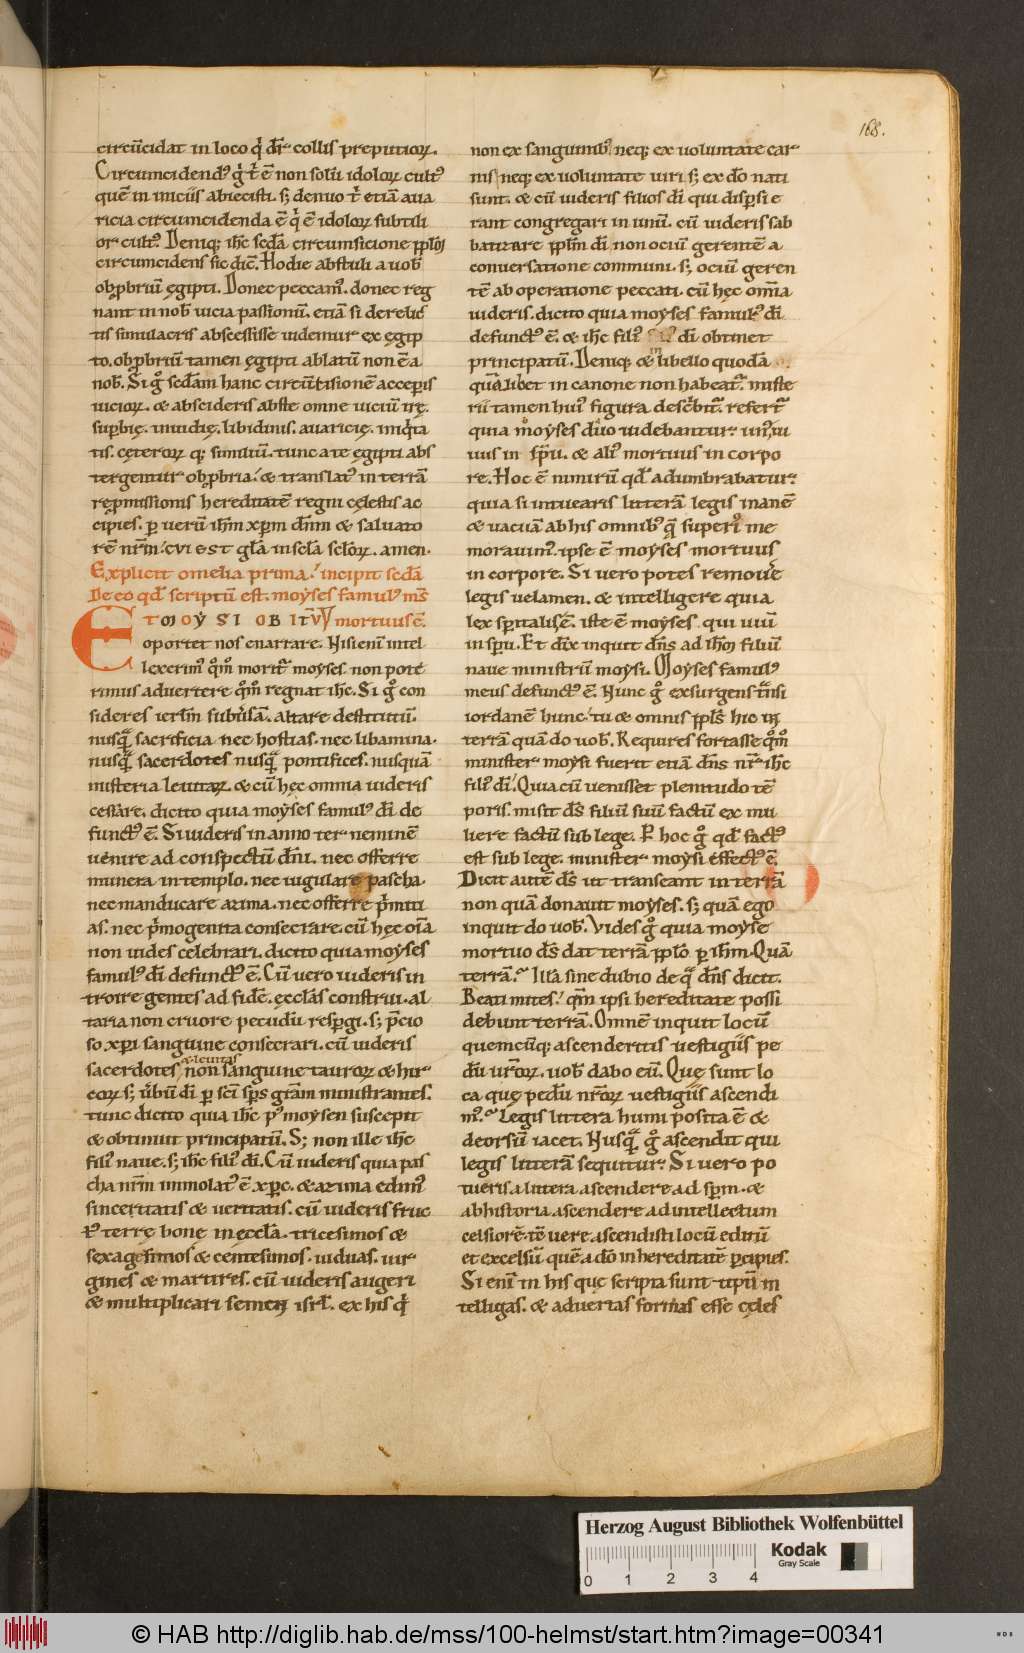 168.
circūcidat in loco q̇ dr̄ collis preputioꝝ.
Circumcidendꝰ g̊ t̄ ē non solū idoloꝝ cultꝰ
quē in iniciis abiecisti. sꝫ denuo t̄ etiā aua
ricia circumcidenda ē q̇ ē idoloꝝ subtili
or cultꝰ. Deniqꝫ ihc̄ scd̄a circumsicione ppl̄m
circumcidens sic dic̄. Hodie abstuli a uob̄
obp̄briū ęgipti. Donec peccamꝰ. donec reg
nant in nob̄ uicia passionū. etiā si derelic
tis simulacris abscessisse uidemur ex ęgip
to. obp̄briū tamen ęgipti ablatū non ē a
nob̄. Si g̊ scd̄am hanc circūcisionē acceperis
uicioꝝ. & abscideris abste omne uiciū irę.
suꝑbię. inuidię. libidinis. auaricię. iniq̇ta
tis. cęteroꝝ qꝫ similiū. tunc a te ęgipti abs
tergentur obp̄bria. & translatꝰ in terrā
rep̄missionis hereditatē regni cęlestis ac
cipies. ꝑ uerū ihm̄ xp̄m dn̄m & saluato
rē nr̄m. cui est gl̄a in scl̄a scl̄oꝝ. amen.
Explicit omelia prima. incipit scd̄a
De eo qd̄ scriptū est. moyses famulꝰ m̄s
ET MOYSI OBITŪ mortuus ē.
oportet nos enarrare. Nisi enī intel
lexerimꝰ q̊m̊ morit̄ moyses. non pote
rimus aduertere q̊m̊ regnat ihc̄. Si g̊ con
sideres ierl̄m subuersā. altare destitutū.
nusq̄ sacrificia nec hostias. nec libamina.
nusq̄ sacerdotes nusq̄ pontifices. nusquā
misteria leuitaꝝ. & cū hęc omnia uideris
cessare. dicito quia moyses famulꝰ dī de
functꝰ ē. Si uideris in anno ter neminē
uenire ad conspectū dn̄i. nec offerre
munera in templo. nec iugulare pascha.
nec manducare azima. nec offerre p̄miti
as. nec p̄mogenita consecrare. cū hęc oīa
non uides celebrari. dicito quia moyses
famulꝰ dī defunctꝰ ē. Cū uero uideris in
troire gentes ad fidē. ęcclās construi. al
taria non cruore pecudū resꝑgi. sꝫ p̄cio
so xp̄i sanguine consecrari. cū uideris
sacerdotes & leuitas non sanguine tauroꝝ & hir
coꝝ sꝫ ūbū dī ꝑ scī sp̄s gr̄am ministrantes.
tunc dicito quia ihc̄ pꝰ moysen suscepit
& obtinuit principatū. Sꝫ non ille ihc̄
filiꝰ naue. sꝫ ihc̄ filiꝰ dī. Cū uideris quia pas
cha nr̄m immolatꝰ ē xp̄c. & azima edimꝰ
sinceritatis & ueritatis. cū uideris fruc
tꝰ terrę bonę in ęccl̄a. tricesimos &
sexagesimos & centesimos. uiduas. uir
gines & martires. cū uideris augeri
& multiplicari semen isrl̄. ex his q̇
non ex sanguinibꝰ neqꝫ ex uoluntate car
nis neqꝫ ex uoluntate uiri sꝫ ex dō nati
sunt. & cū uideris filios dī qui disꝑsi e
rant congregari in unū. cū uideris sab
batizare ppl̄m dī non ociū gerentē a
conuersatione communi. sꝫ ociū geren
tē ab operatione peccati. cū hęc omīa
uideris. dicito quia moyses famulꝰ dī
defunctꝰ ē. & ihc̄ filiꝰ dī obtinet
principatū. Deniqꝫ & in libello quodā
quālibet in canone non habeat̄. miste
rii tamen huiꝰ figura describit̄. refert̄
quia moyses duo uidebantur. unꝰ ui
uus in sp̄u. & aliꝰ mortuus in corpo
re. Hoc ē nimirū qd̄ adumbrabatur.
quia si intuearis litterā legis inanē
& uacuā ab his omnibꝰ quę superiꝰ me
morauimꝰ. ipse ē moyses mortuus
in corpore. Si uero potes remouere
legis uelamen. & intelligere quia
lex spiritalis ē. iste ē moyses qui uiuī
in sp̄u. Et dix̄ inquit dn̄s ad ihm̄ filiū
naue ministrū moysi. Moyses famulꝰ
meus defunctꝰ ē. Nunc g̊ exsurgens trānsi
iordanē hunc. tu & omnis ppl̄s hic in
terrā quā do uob̄. Requires fortasse q̊m̊
minister moysi fuerit etiā dn̄s nr̄ ihc̄
filiꝰ dī. Quia cū uenisset plenitudo tē
poris. misit ds̄ filiū suū factū ex mu
liere factū sub lege. Ꝑ hoc g̊ qd̄ factꝰ
est sub lege. minister moysi effectꝰ ē.
Dicit autē ds̄ ut transeant in terrā
non quā donauit moyses. sꝫ quā ego
inquit do uob̄. Vides g̊ quia moyse
mortuo ds̄ dat terrā ppl̄o ꝑ ihm̄. Quā
terrā. Illā sine dubio de q̄ dn̄s dicit.
Beati mites. qm̄ ipsi hereditate possi
debunt terrā. Omnē inquit locū
quemcūqꝫ ascenderitis uestigiis pe
dū ur̄oꝝ. uob̄ dabo eū. Quę sunt lo
ca quę pedū nr̄oꝝ uestigiis ascendi
mꝰ. Legis littera humi posita ē &
deorsū iacet. Nusq̄ g̊ ascendit qui
legis litterā sequitur. Si uero po
tueris a littera ascendere ad sp̄m. &
ab historia ascendere ad intellectum
celsiorē. tē uere ascendisti locū editū
et excelsū quē a dō in hereditatē ꝑcipies.
Si enī in his quę scripta sunt tipū in
telligas. & aduertas formas esse cęles
Herzog August Bibliothek Wolfenbüttel
Kodak
Gray Scale
0 1 2 3 4
© HAB http://diglib.hab.de/mss/100-helmst/start.htm?image=00341